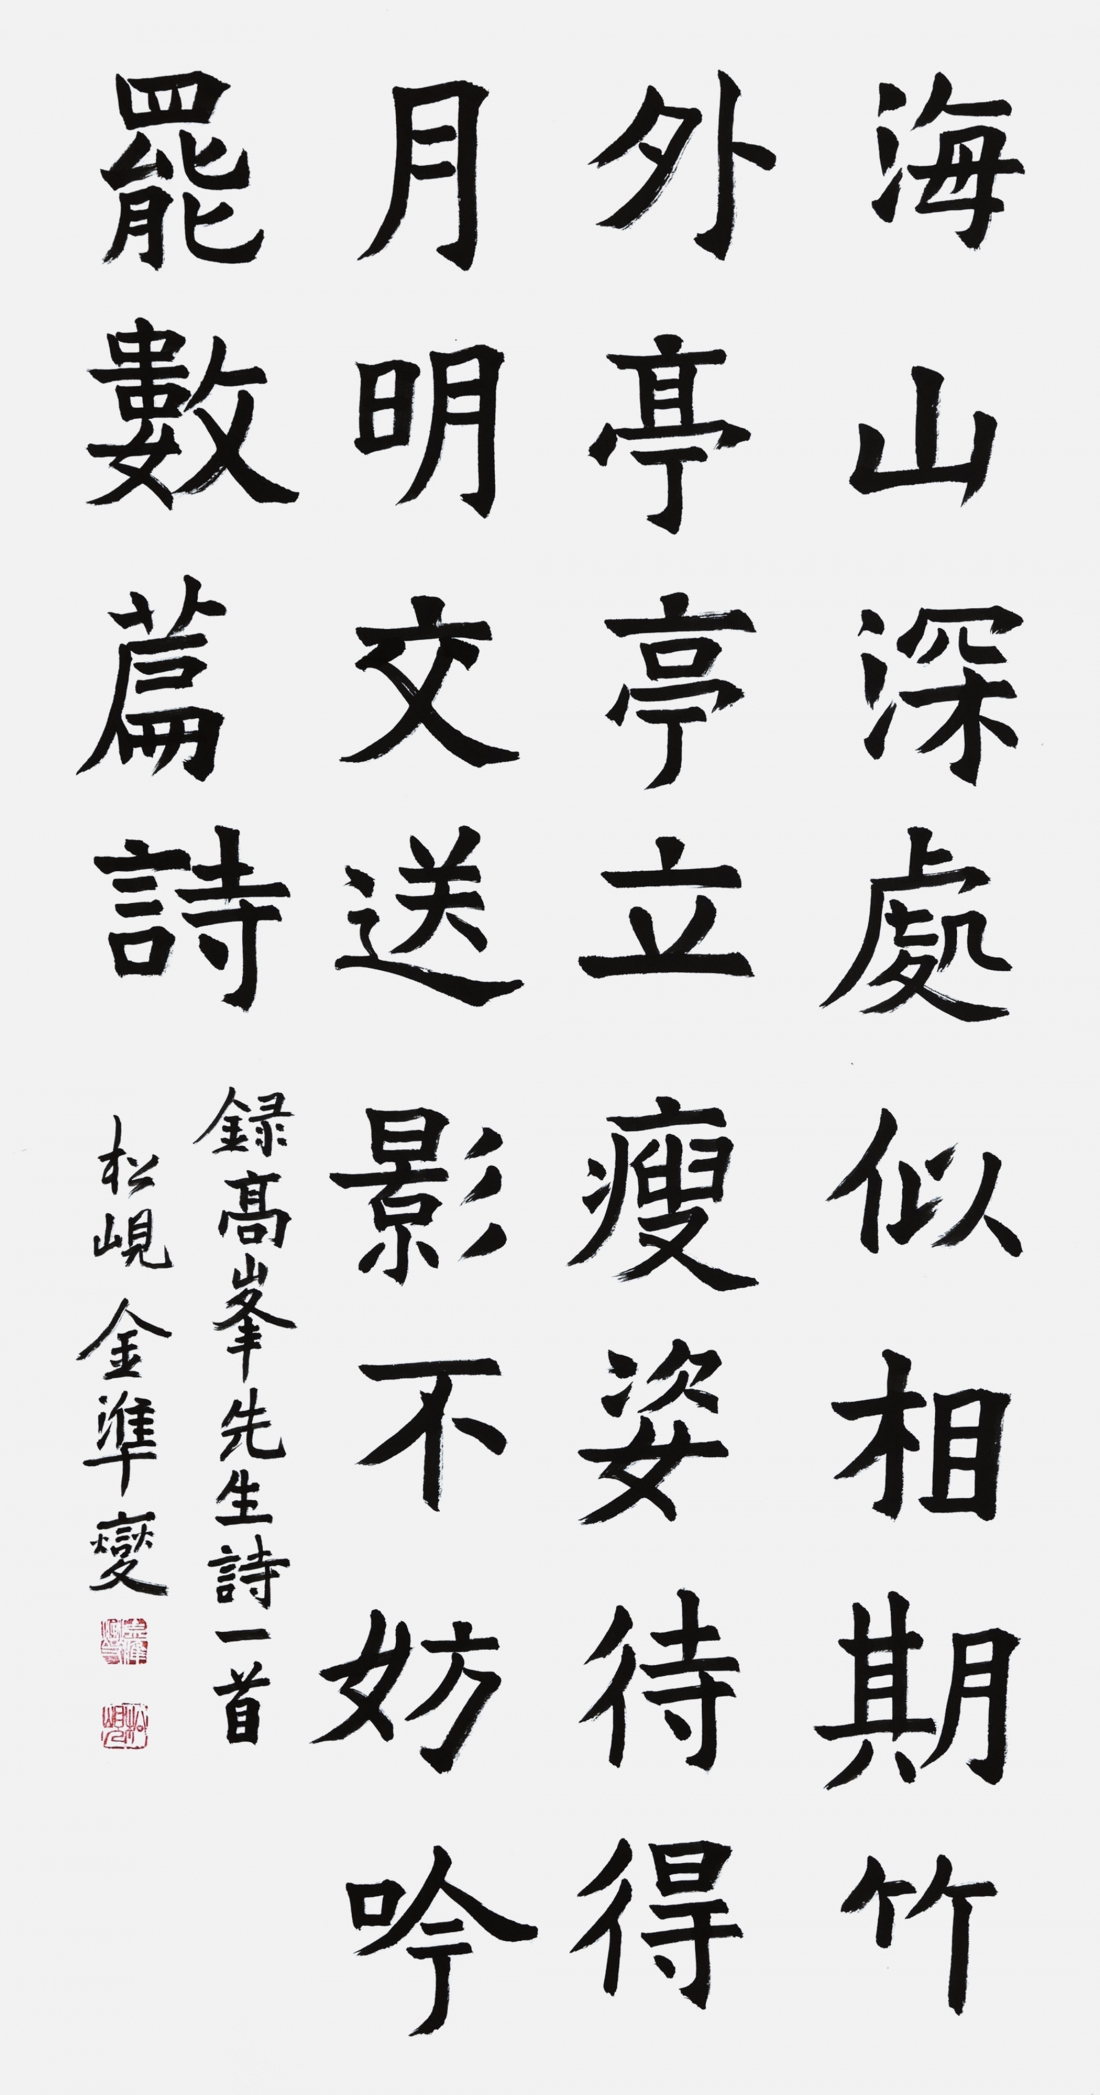 海山深處似相期竹
外亭亭立瘦姿待得
月明交送影不妨吟
罷數篇詩
録高峯先生詩一首
松峴 金準燮